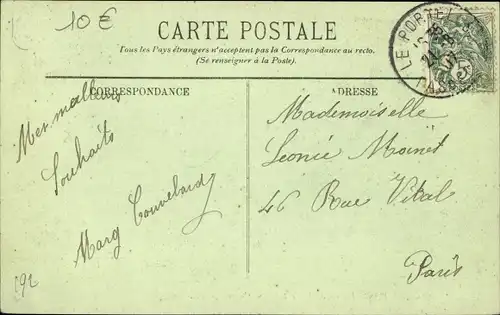 10 €
CARTE POSTALE
Tous les Pays étrangers n'acceptent pas la Correspondance au recto.
(Se renseigner à la Poste).
LE PORTEL
CORRESPONDANCE
ADRESSE
Mes meilleurs
Souhaits
Marg
Mademoiselle
Léonie Moinet
46 Rue Vital
Paris
192
5